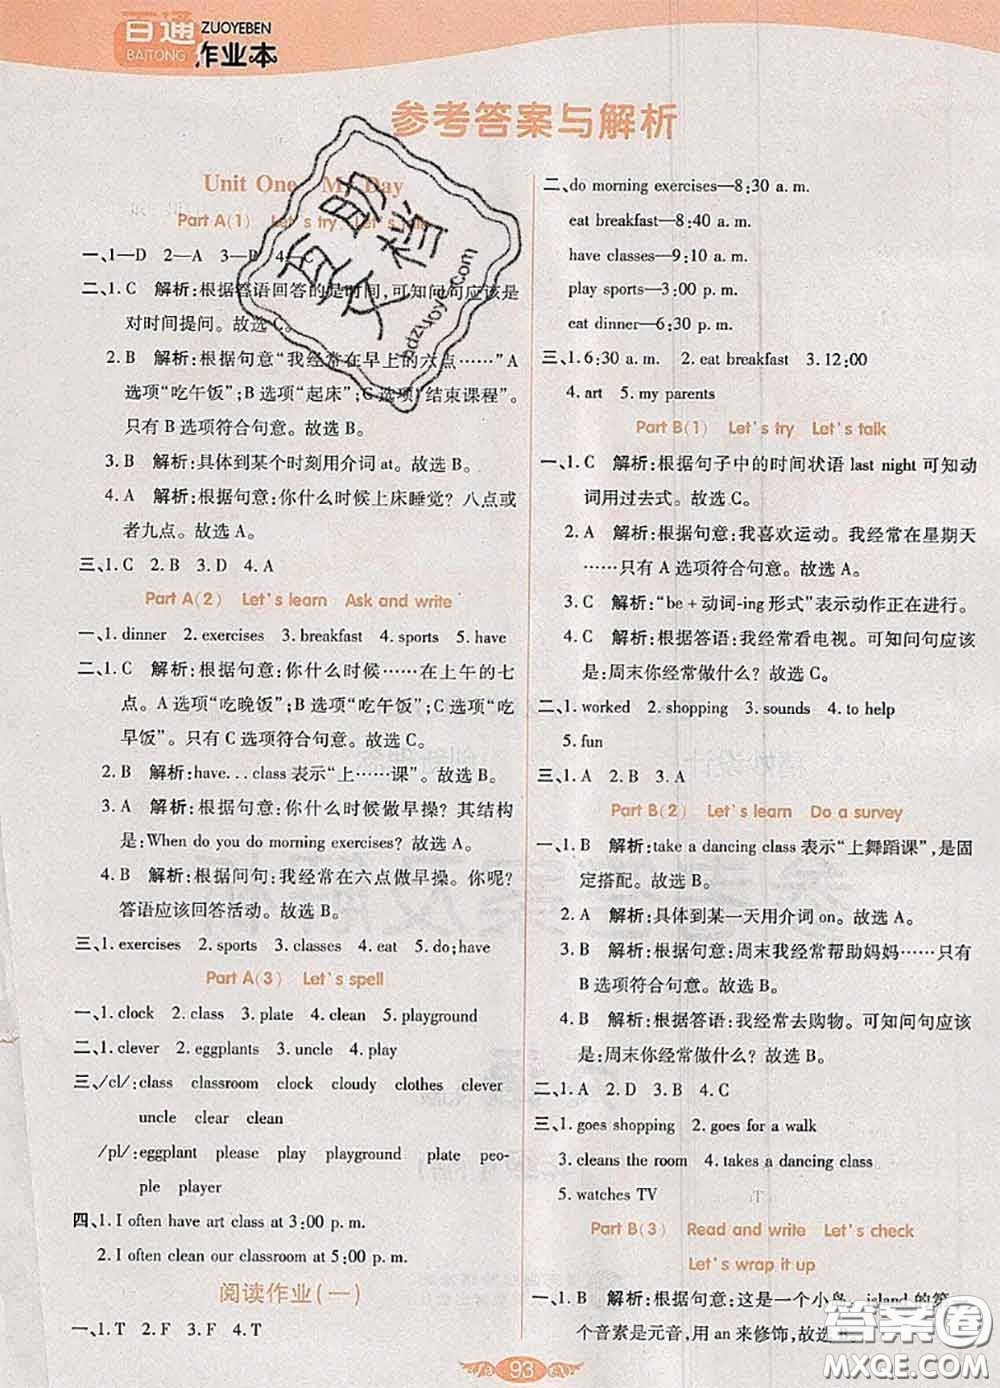 百通
BAITONG
ZUOYEBEN
作业本
参考答案与解析
Unit One My Day
Part A(1) Let's try Let's talk
一、1—D 2—A 3—B 4—C
二、1. C 解析:根据答语回答的是时间,可知问句应该是
对时间提问。故选 C。
2. B 解析:根据句意“我经常在早上的六点……”A
选项“吃午饭”;B 选项“起床”;C 选项“结束课程”。
只有 B 选项符合句意。故选 B。
3. B 解析:具体到某个时刻用介词 at。故选 B。
4. A 解析:根据句意:你什么时候上床睡觉? 八点或
者九点。故选 A。
三、1. C 2. B 3. D 4. A
Part A(2) Let's learn Ask and write
一、1. dinner 2. exercises 3. breakfast 4. sports 5. have
二、1. C 解析:根据句意:你什么时候……在上午的七
点。A 选项“吃晚饭”;B 选项“吃午饭”;C 选项“吃
早饭”。只有 C 选项符合句意。故选 C。
2. B 解析:have...class 表示“上……课”。故选 B。
3. A 解析:根据句意:你什么时候做早操? 其结构
是:When do you do morning exercises? 故选 A。
4. B 解析:根据问句:我经常在六点做早操。你呢?
答语应该回答活动。故选 B。
三、1. exercises 2. sports 3. classes 4. eat 5. do;have
Part A(3) Let's spell
一、1. clock 2. class 3. plate 4. clean 5. playground
二、1. clever 2. eggplants 3. uncle 4. play
三、/cl/:class classroom clock cloudy clothes clever
uncle clear clean
/pl/:eggplant please play playground plate peo-
ple player
四、1. I often have art class at 3:00 p. m.
2. I often clean our classroom at 5:00 p. m.
阅读作业(一)
一、1. T 2. F 3. F 4. T
二、do morning exercises—8:30 a. m.
eat breakfast—8:40 a. m.
have classes—9:10 a. m.
play sports—3:00 p. m.
eat dinner—6:30 p. m.
三、1. 6:30 a. m. 2. eat breakfast 3. 12:00
4. art 5. my parents
Part B(1) Let's try Let's talk
一、1. C 解析:根据句子中的时间状语 last night 可知动
词用过去式。故选 C。
2. A 解析:根据句意:我喜欢运动。我经常在星期天
……只有 A 选项符合句意。故选 A。
3. C 解析:“be+动词-ing 形式”表示动作正在进行。
4. C 解析:根据答语:我经常看电视。可知问句应该
是:周末你经常做什么? 故选 C。
二、1. worked 2. shopping 3. sounds 4. to help
5. fun
三、1. A 2. B 3. A
Part B(2) Let's learn Do a survey
一、1. B 解析:take a dancing class 表示“上舞蹈课”,是固
定搭配。故选 B。
2. A 解析:具体到某一天用介词 on。故选 A。
3. B 解析:根据句意:周末我经常帮助妈妈……只有
B 选项符合句意。故选 B。
4. B 解析:根据答语:我经常去购物。可知问句应该
是:周末你经常做什么? 故选 B。
二、1. A 2. D 3. B 4. C
三、1. goes shopping 2. goes for a walk
3. cleans the room 4. takes a dancing class
5. watches TV
Part B(3) Read and write Let's check
Let's wrap it up
一、1. B 解析:根据句意:这是一个小岛。island 的第一
个音素是元音,用 an 来修饰,故选 B。
93
互助
文档
答案圈
MXQE.COM